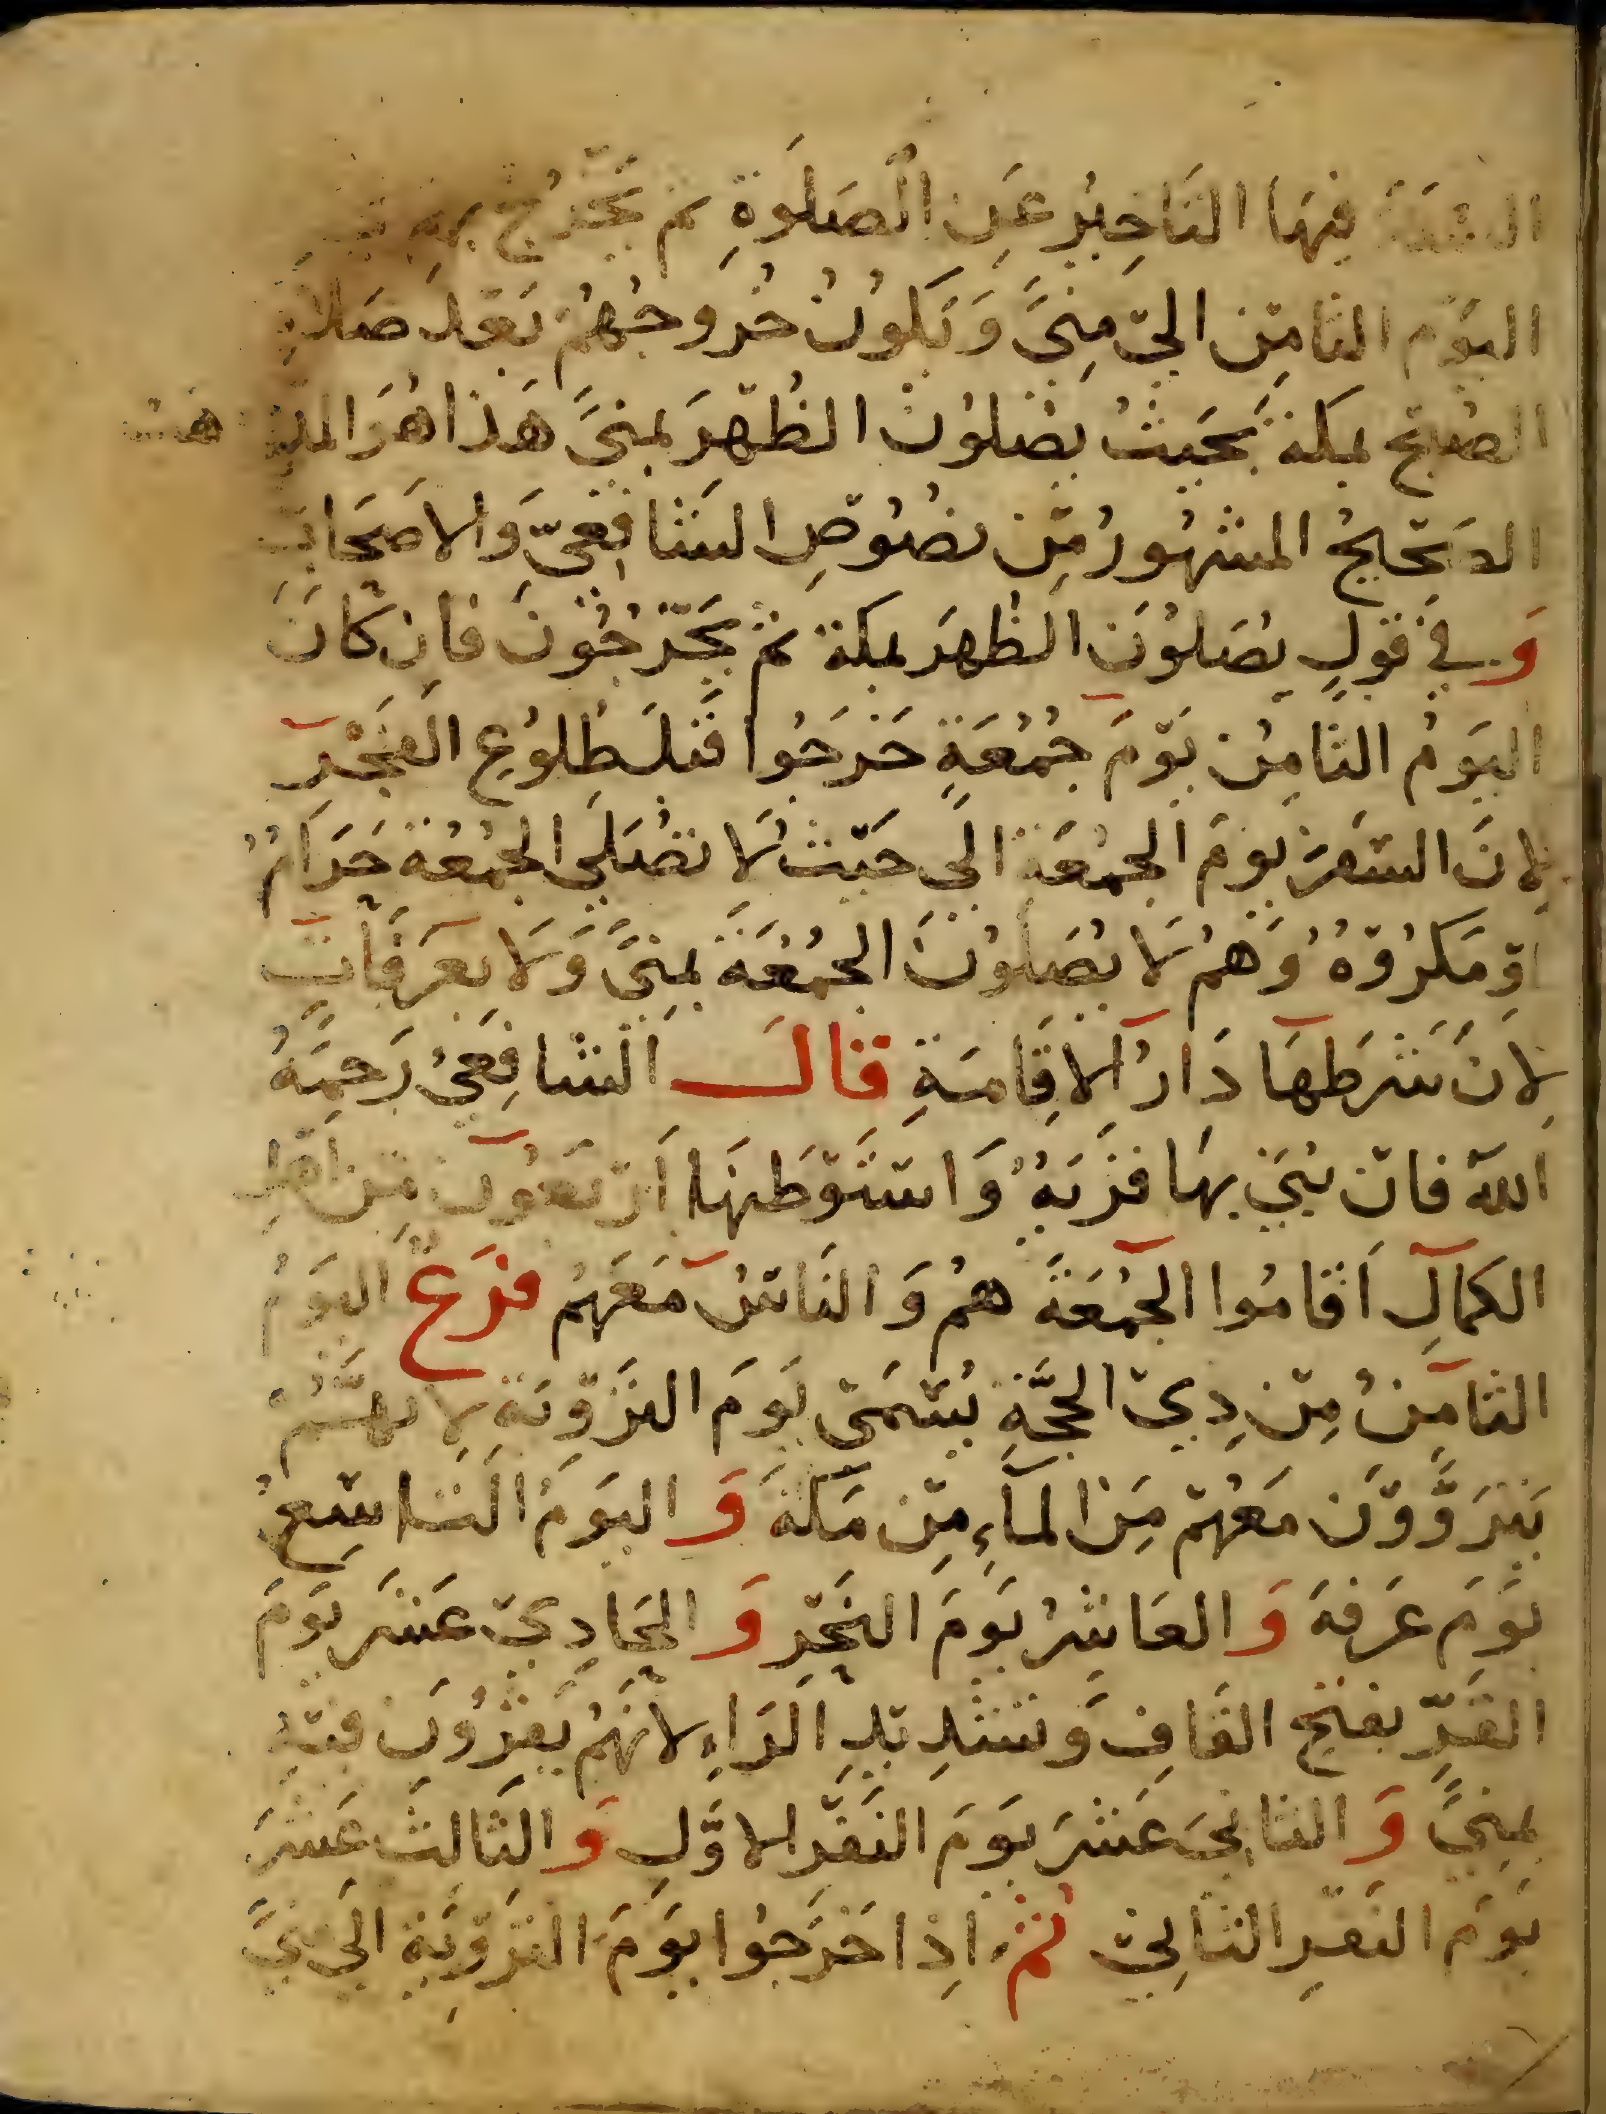 السنة فيها التاخير عن الصلوة ثم يخرج بهم
اليوم الثامن الى منى ويكون خروجهم بعد صلاة
الصبح بمكة بحيث يصلون الظهر بمنى هذا هو المذ هب
الصحيح المشهور من نصوص الشافعي والاصحاب
وفي قول يصلون الظهر بمكة ثم يخرجون فان كان
اليوم الثامن يوم جمعة خرجوا قبل طلوع الفجر
لان السفر يوم الجمعة الى حيث لا تصلى الجمعة حرام
او مكروه وهم لا يصلون الجمعة بمنى ولا بعرفات
لان شرطها دار الاقامة قال الشافعي رحمه
الله فان بني بها قرية واستوطنها اربعون من اهل
الكمال اقاموا الجمعة هم والناس معهم فرع اليوم
الثامن من ذي الحجة يسمى يوم التروية لانهم
يتروون معهم من الماء من مكة واليوم التاسع
يوم عرفة والعاشر يوم النحر والحادي عشر يوم
القر بفتح القاف وتشديد الراء لانهم يقرون فيه
بمنى والثاني عشر يوم النفر الاول والثالث عشر
يوم النفر الثاني ثم اذا خرجوا يوم التروية الى منى